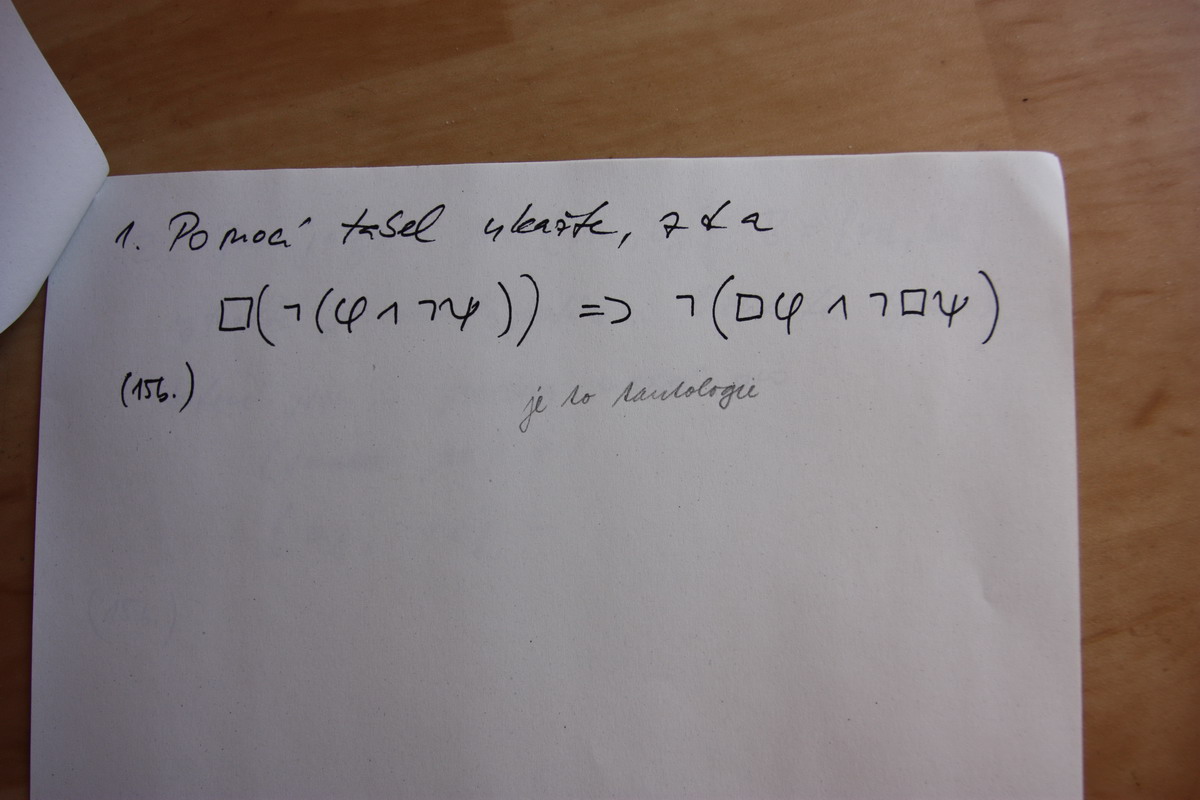 1. Pomocí tabel ukažte, zda
□(¬(φ∧¬ψ)) => ¬(□φ ∧ ¬□ψ)
(15b.)
je to tautologie